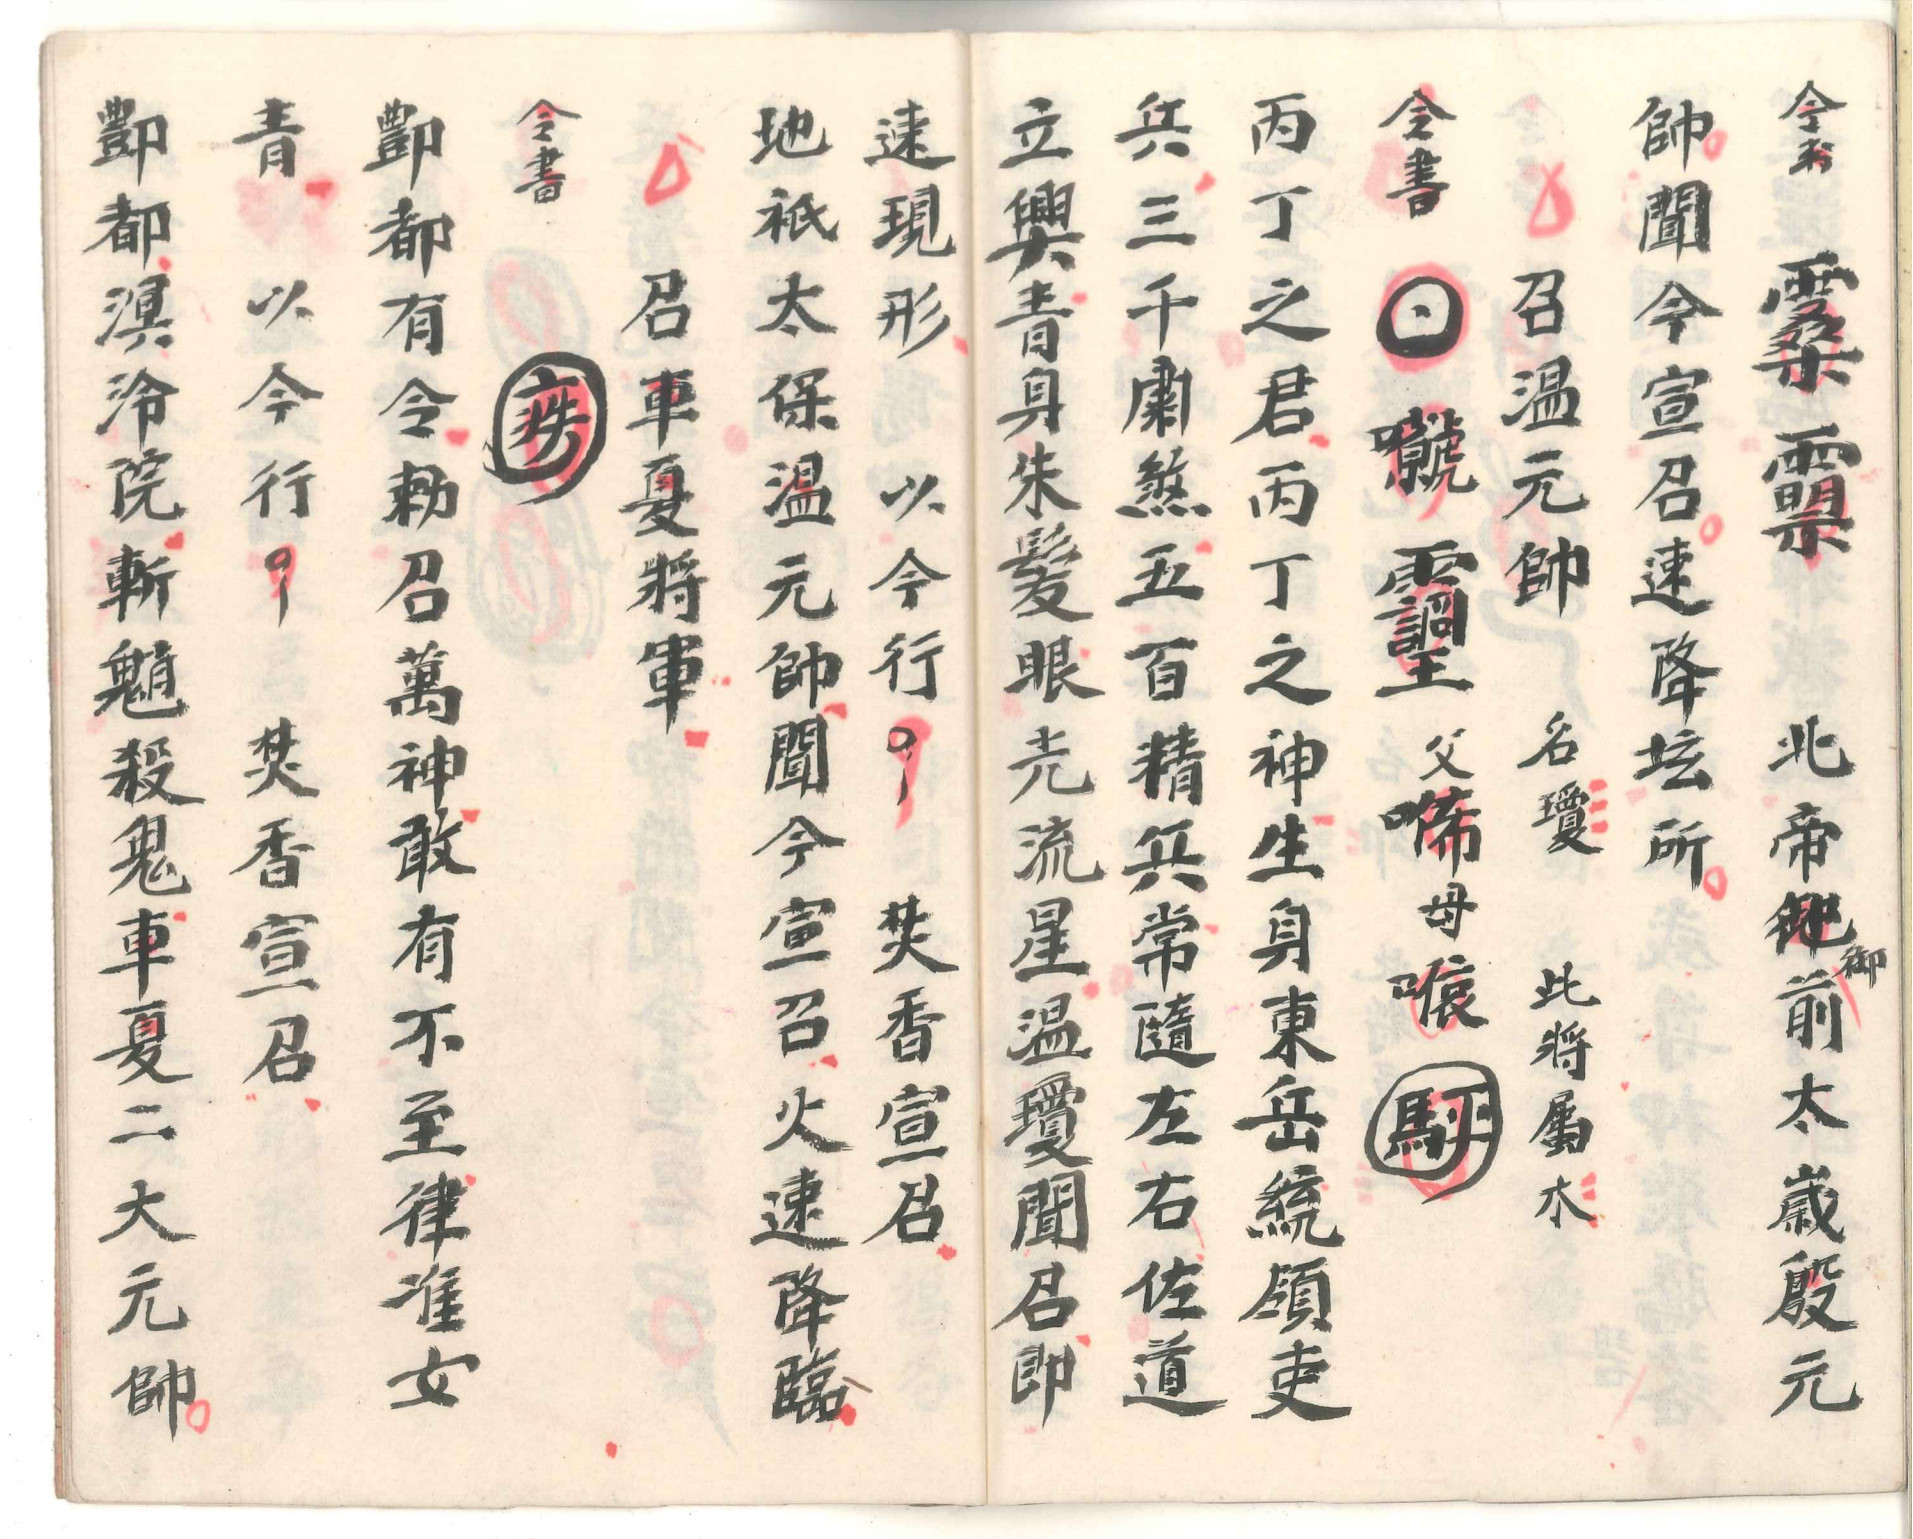 令書 北帝御前太歲殷元
帥聞今宣召速降坛所
召温元帥 名瓊 此將屬木
令書 父 母
丙丁之君丙丁之神生身東岳統領吏
兵三千肅煞五百精兵常隨左右佐道
立興青身朱髮眼光流星温瓊聞召即
速現形 以今行 焚香宣召
地祇太保温元帥聞今宣召火速降臨
召車夏將軍
令書
酆都有令勅召萬神敢有不至律准女
青 以今行 焚香宣召
酆都溟泠院斬魈殺鬼車夏二大元帥